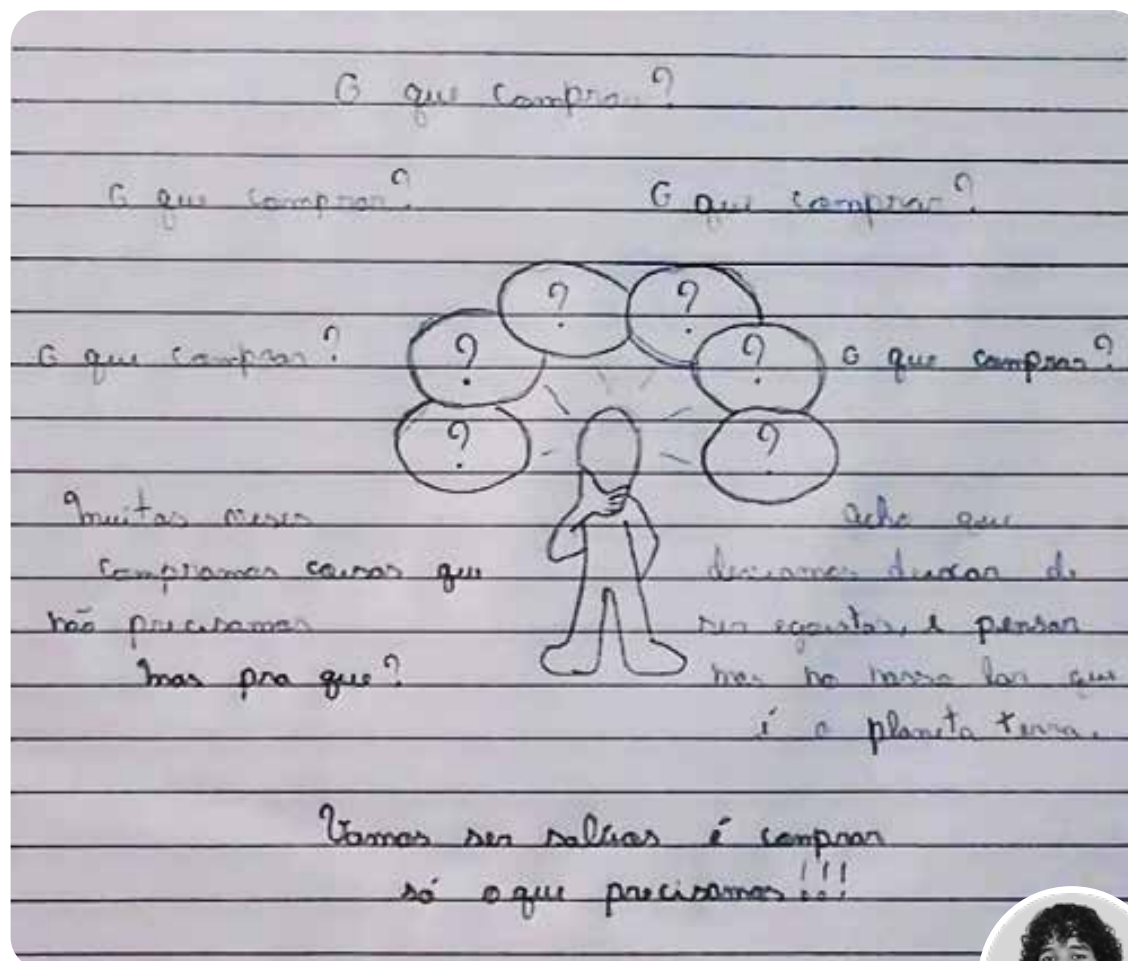 O que comprar?
O que comprar?
O que comprar?
O que comprar?
O que comprar?
Muitas veses
Compramos coisas que
não precisamos
mas pra que?
Acho que
deviamos deixar de
ser egoistas, e pensar
mas no nosso lar que
é o planeta terra.
Vamos ser é comprar
só oque precisamos!!!